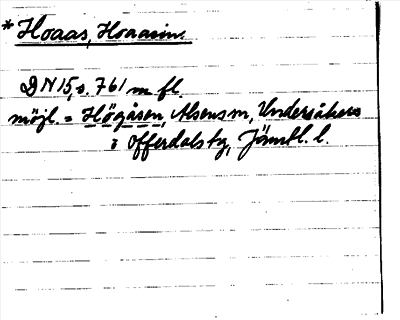 * Hoaas, Hoaasin.
DN 15, s. 761 m fl
möjl. = Högåsen, Alsens m, Undersåkers
o Offerdals tg, Jämtl. l.